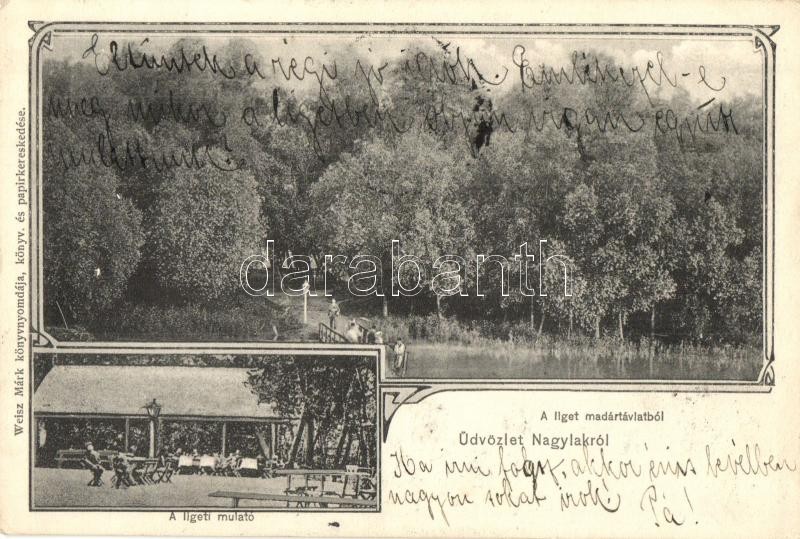 Eltüntek a régi jó idők. Emlékezel-e
még mikor a ligetben olyan vigan együtt
mulattunk!
darabanth
Weisz Márk könyvnyomdája, könyv. és papirkereskedése.
A liget madártávlatból
Üdvözlet Nagylakról
A ligeti mulató
Ha irni fogsz, akkor én is levélben
nagyon sokat irok!
Pá!